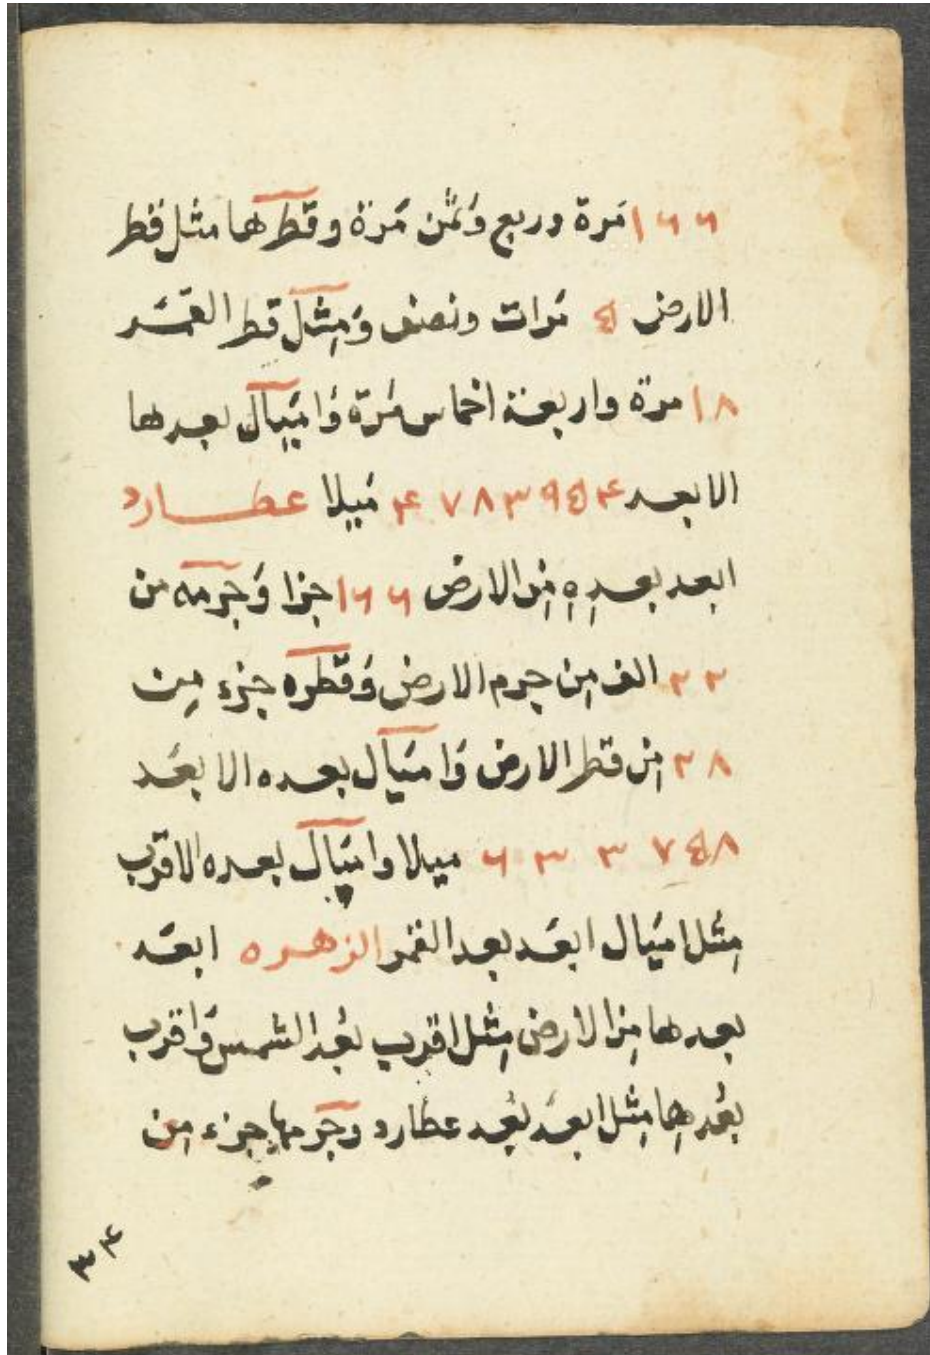 ١٦٦ مَرة وربع وَثمُن مَرة وقطرها مثل قطر
الارض ٥ مَرات ونصف وَمِثل قطر القمَر
١٨ مرة واربعة اخماس مَرة وَامَيال بعدها
الابعد ٤٧٨٣٩٥٤ مَيلا عطارد
ابعد بعدِهِ مِن الارض ١٦٦ جزا وَجرمه من
٢٢ الف مِن جرم الارض وَقطره جزء مِن
٢٨ مِن قطر الارض وَامَيال بعده الابعَد
٦٣٣٧٥٨ ميلا وامَيال بعده الاقرب
مِثل امَيال ابعَد بعد القمر الزهره ابعَد
بعدها مِن الارض مِثل اقرب بعُد الشمس وَاقرب
بعُدها مِثل ابعَد بعُد عطارد وجَرمها جزء مِن
٣٤